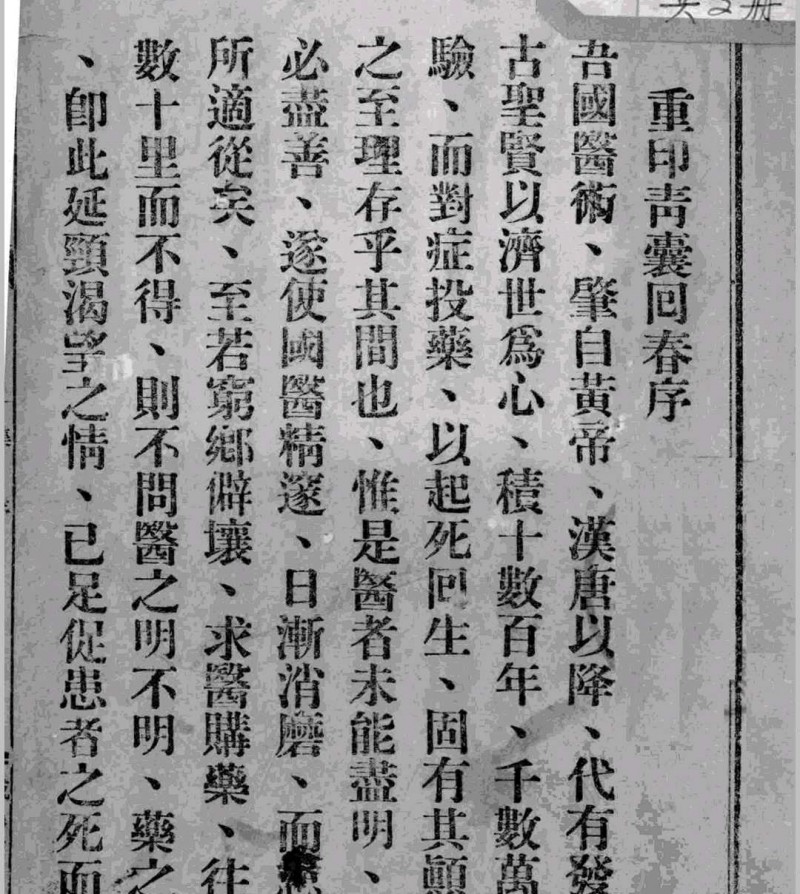 共2册
重印靑囊回春序
吾國醫術、肇自黃帝、漢唐以降、代有發
古聖賢以濟世爲心、積十數百年、千數萬
驗、而對症投藥、以起死回生、固有其顚
之至理存乎其間也、惟是醫者未能盡明、
必盡善、遂使國醫精邃、日漸消磨、而
所適從矣、至若窮鄉僻壤、求醫購藥、往
數十里而不得、則不問醫之明不明、藥之
、卽此延頸渴望之情、已足促患者之死而